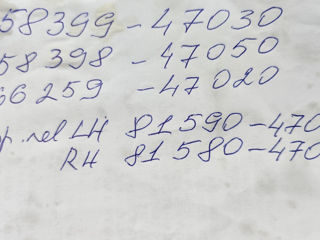 58399 - 47030
58398 - 47050
66259 - 47020
LH 81590 - 470
RH 81580 - 470